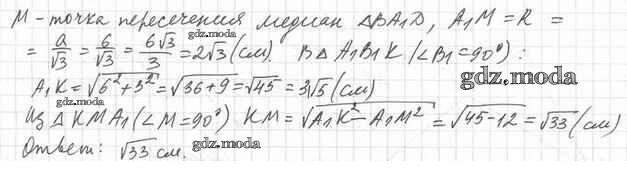 M - точка пересечения медиан ΔBA₁D, A₁M = R =
= a/√3 = 6/√3 = 6√3/3 = 2√3 (см). В Δ A₁B₁K (∠B₁=90°):
gdz.moda
A₁K = √(6²+3²) = √(36+9) = √45 = 3√5 (см)
gdz.moda
gdz.moda
Из Δ KMA₁ (∠M=90°) KM = √(A₁K² - A₁M²) = √(45-12) = √33 (см)
Ответ: √33 см.
gdz.moda